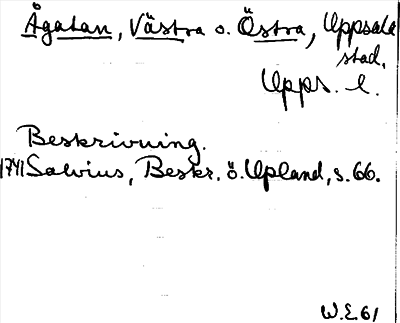 Ågatan, Västra o. Östra, Uppsala
stad.
Upps. l.
Beskrivning.
1741 Salvius, Beskr. ö. Upland, s. 66.
W.E. 61